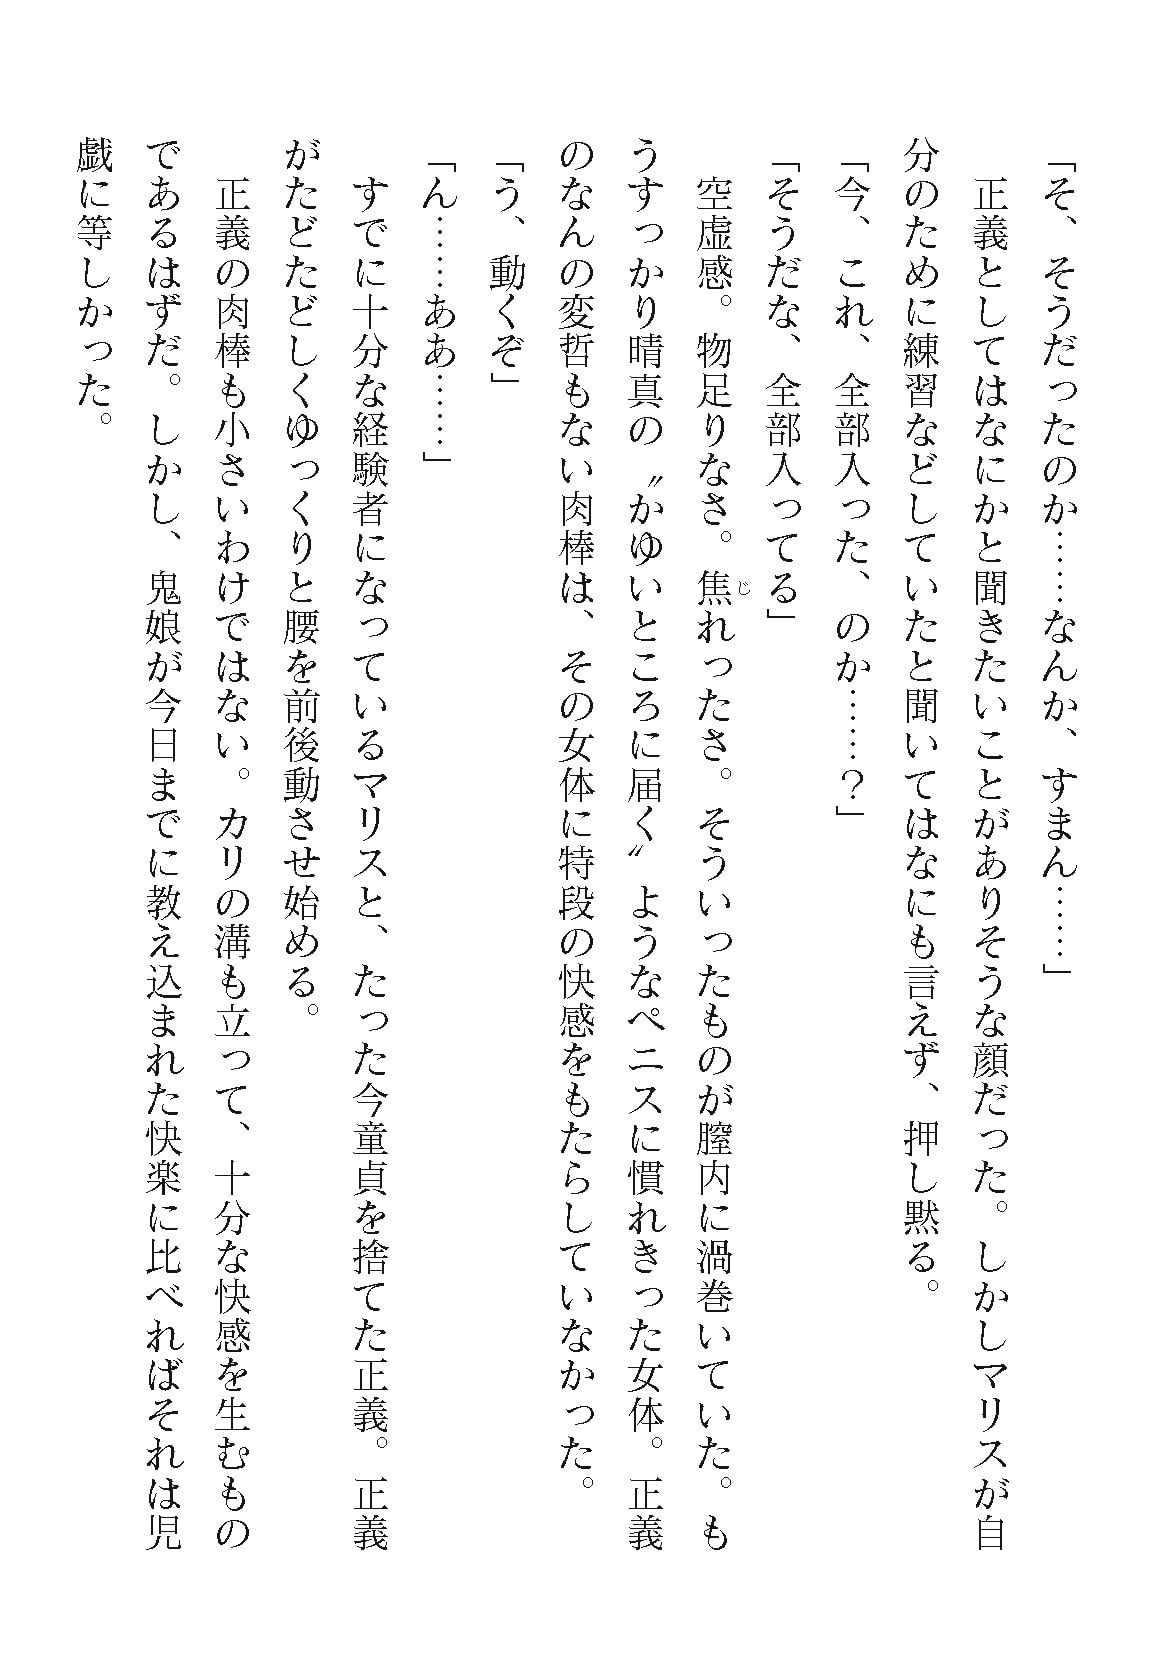 「そ、そうだったのか……なんか、すまん……」
　正義としてはなにかと聞きたいことがありそうな顔だった。しかしマリスが自
分のために練習などしていたと聞いてはなにも言えず、押し黙る。
「今、これ、全部入った、のか……？」
「そうだな、全部入ってる」
　空虚感。物足りなさ。焦れったさ。そういったものが膣内に渦巻いていた。も
うすっかり晴真の〝かゆいところに届く〟ようなペニスに慣れきった女体。正義
のなんの変哲もない肉棒は、その女体に特段の快感をもたらしていなかった。
「う、動くぞ」
「ん……ああ……」
　すでに十分な経験者になっているマリスと、たった今童貞を捨てた正義。正義
がたどたどしくゆっくりと腰を前後動させ始める。
　正義の肉棒も小さいわけではない。カリの溝も立って、十分な快感を生むもの
であるはずだ。しかし、鬼娘が今日までに教え込まれた快楽に比べればそれは児
戯に等しかった。